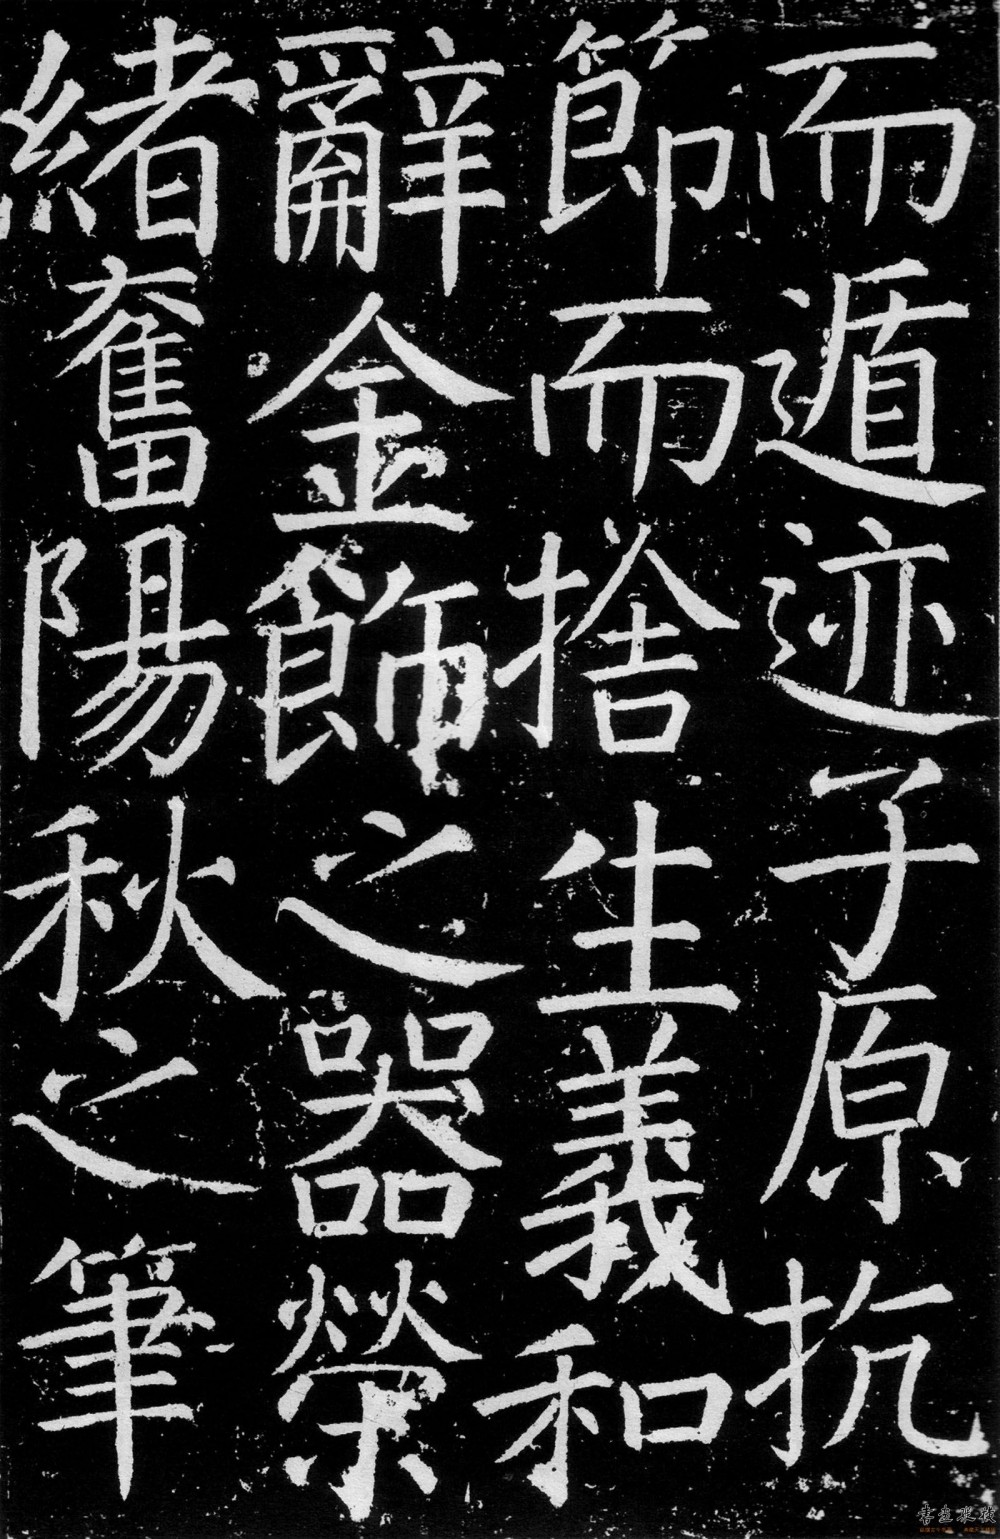 而遁迹子原抗
節而捨生義和
辭金飾之器榮
緒奮陽秋之筆